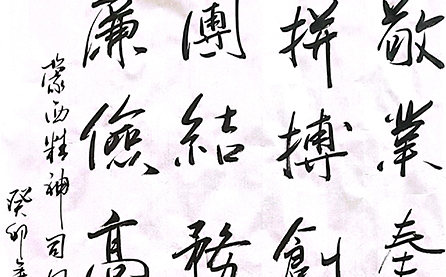 敬業奉
拼搏創
團結務
廉儉高
蒙西精神司
癸卯